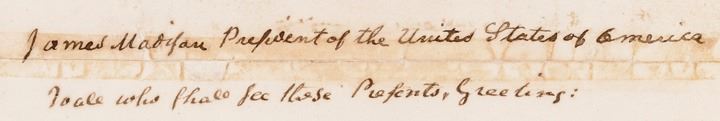 James Madiſon Preſident of the United States of America
To all who ſhall ſee these Preſents, Greeting: